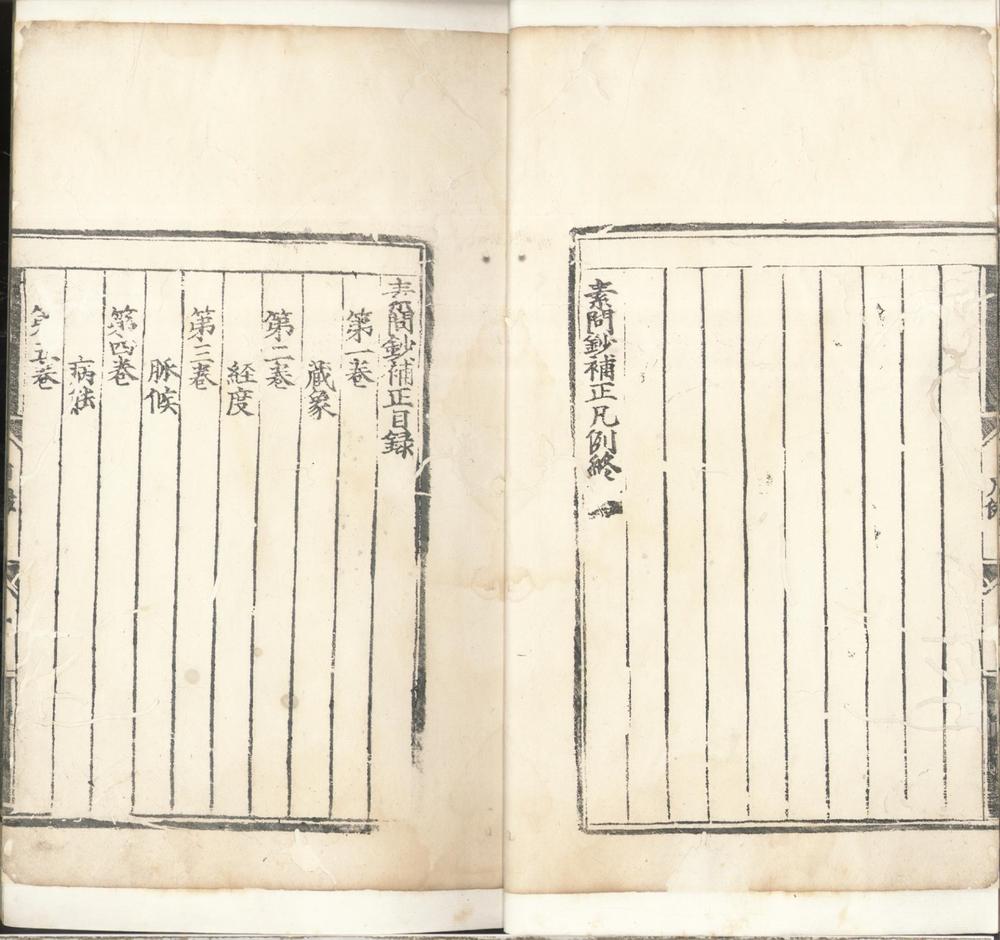 素問鈔補正凡例終
素問鈔補正目録
第一巻
藏象
第二巻
経度
第三巻
脉候
第四巻
病能
第五巻